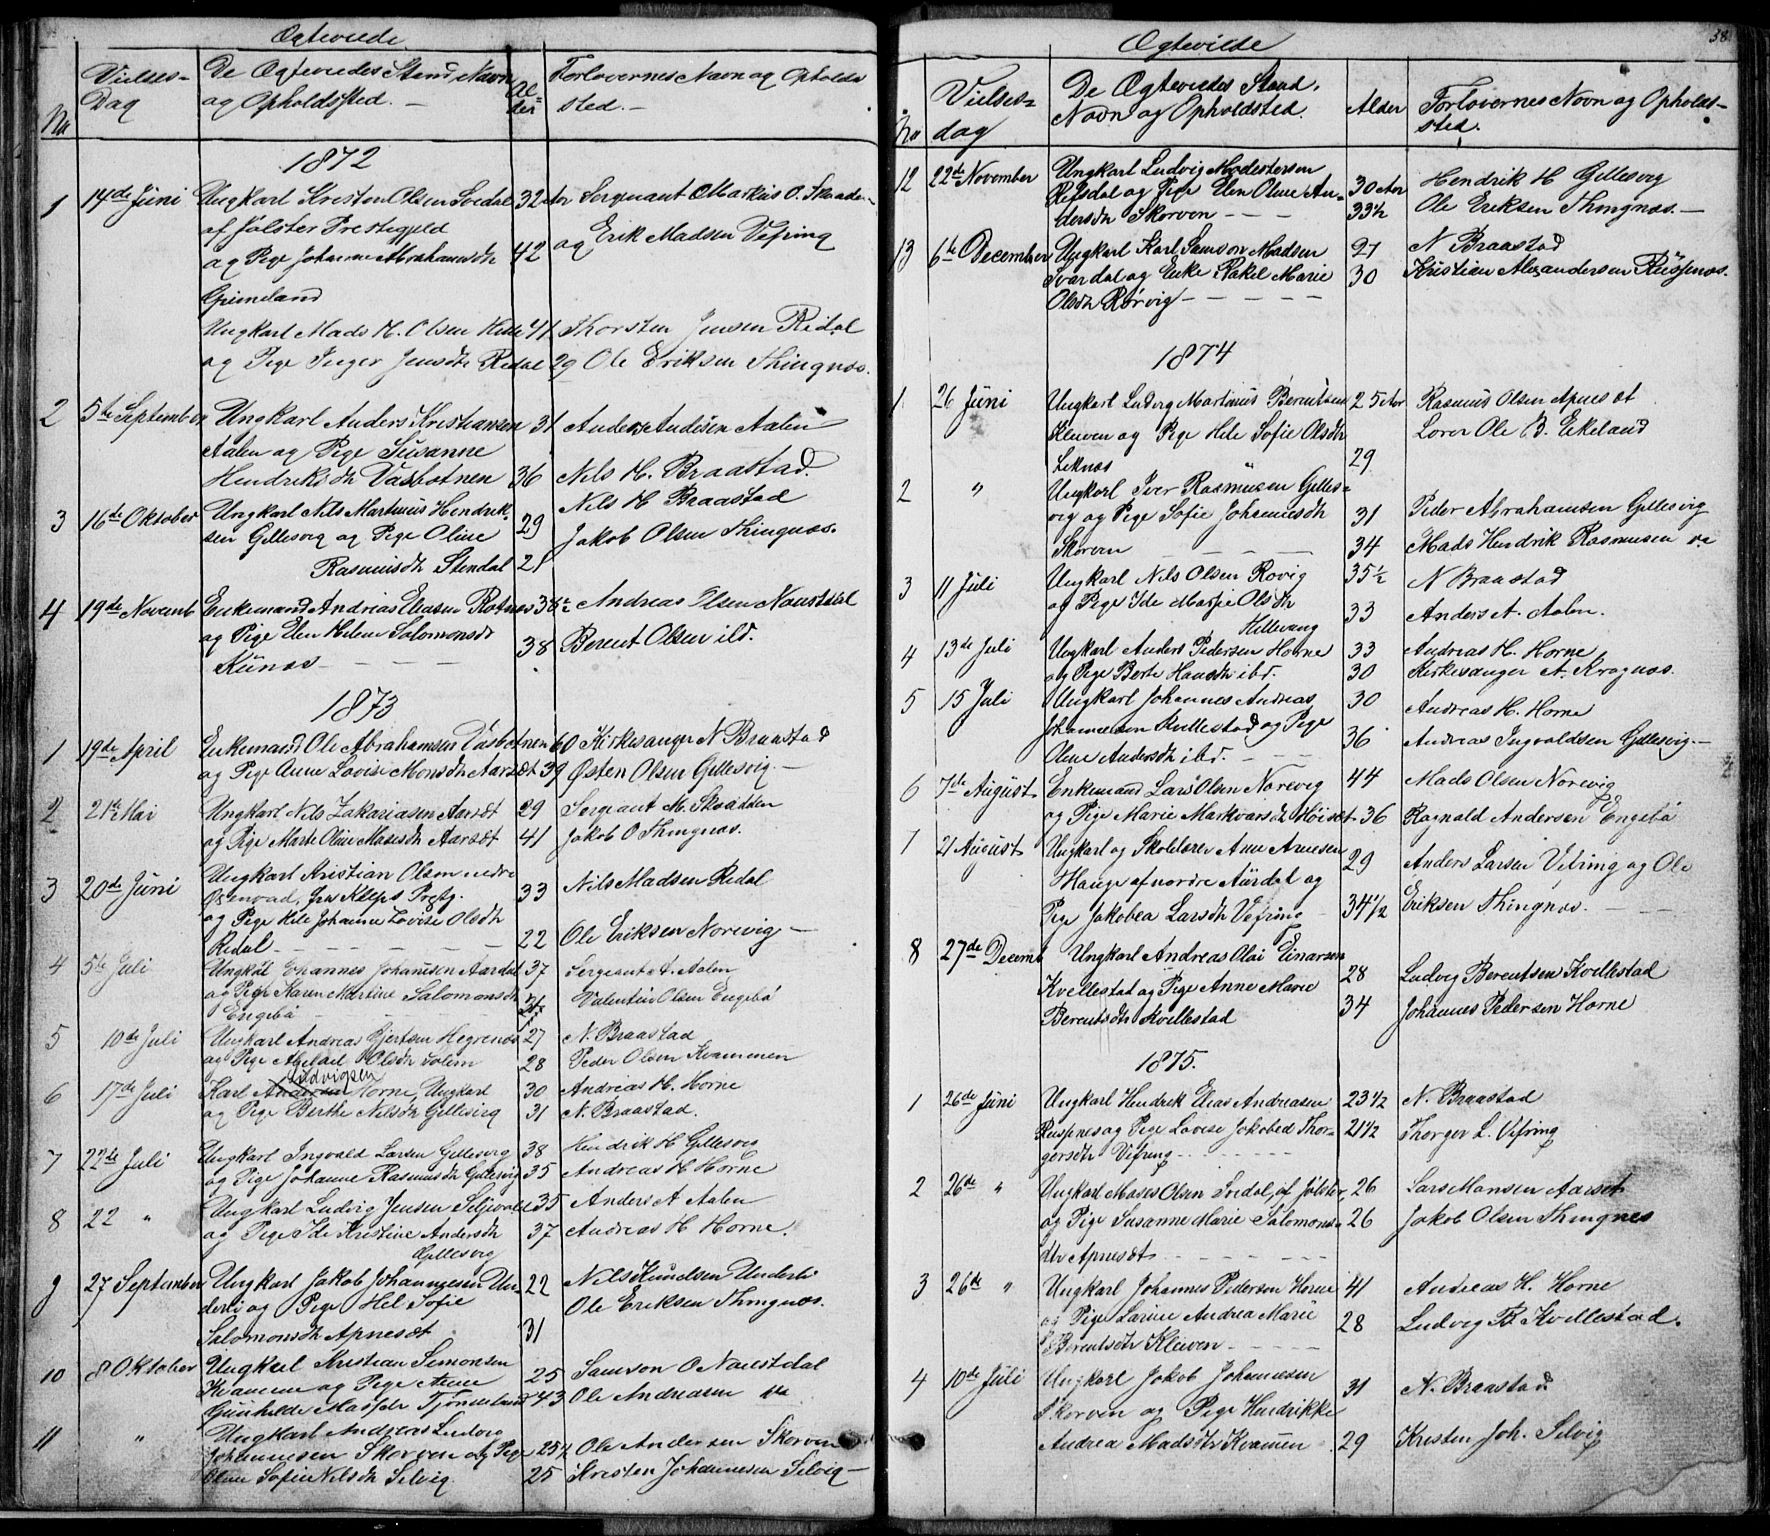 Ægteviede
No
Vielses-
Dag
De Ægteviedes Stand, Navn
og Opholdssted. —
Al-
der
Forlovernes Navn og Opholds
sted. —
1872
1 14de Juni Ungkarl Kresten Olsen Svedal 32 Aar Sergeant Markus O. Skaade-
af Jølster Prestegjeld
og Pige Johanne Abrahamsdtr 42 og Erik Madsen Vefring
Grimeland
Ungkarl Mads H. Olsen 41 Thorsten Jensen Redal
og Pige Inger Jensdtr Redal 29 Ole Eriksen Thingnæs.
2 5te September Ungkarl Anders Kristiansen 31 Anders Andersen Aalen
Aalen og Pige Susanne
Hendriksdtr Vasbotnen 36 Nils H. Braastad.
3 16de Oktober Ungkarl Nils Martinus Hendrik- 29 Nils H Braastad
sen Gillesvig og Pige Oline Jakob Olsen Thingnæs.
Rasmusdtr Stendal 21
4 19de Novemb Enkemand Andreas Eliasen Rotnes 38½ Andreas Olsen Naustdal
og Pige Elen Helene Salomonsdt 38 Berent Olsen ibd.
Kunæs — — — —
1873
1 19de April Enkemand Ole Abrahamsen Vasbotnen 60 Kirkesanger N Braastad
og Pige Anne Lovise Monsdtr Aarsæt 39 Østen Olsen Gillesvig. —
2 21de Mai Ungkarl Nils Zakariasen Aarsæt 29 Sergeant M. Skaadden
og Pige Marte Oline Mosesdtr Aarsæt 41 Jakob O Thingnæs.
3 20de Juni Ungkarl Kristian Olsen nedre 33 Nils Madsen Redal
og Pige Johanne Lovise Olsdtr
Redal — — — — 22 Ole Eriksen Norevig —
4 5te Juli Ungkarl Johannes Johannesen Aardal 37 Sergeant A. Aalen
og Pige Karen Martine Salomonsdtr Valentin Olsen Engebø
Engebø — — —
5 10de Juli Ungkarl Andreas Gjertsen Hegrenæs 27 N. Braastad
og Pige Abelael Olsdtr Solem 28 Peder Olsen Kvammen
Ludvigsen
6 17de Juli Karl Andersen Horne, Ungkarl 30 Andreas H. Horne
og Pige Berthe Nilsdtr Gillesvig 31 N. Braastad.
7 22de Juli Ungkarl Ingvald Larsen Gillesvig 38 Hendrik H Gillesvig
og Pige Johanne Rasmusdtr Gillesvig 35 Andreas H Horne
8 22 " Ungkarl Ludvig Jensen Seljevold 35 Anders A Aalen
og Pige Ide Kristine Andersdtr 37 Andreas H Horne.
Gillesvig
9 27 September Ungkarl Jakob Johannesen Un- 22 Nils Knudsen Underli
derli og Pige Hel Sofie Ole Eriksen Thingnæs.
Salomonsdtr Apnesæt 31
10 8 Oktober Ungkarl Kristian Simonsen 25 Samson O Naustdal
Kvamme og Pige Anne
Gunhilde Madsdtr 43 Ole Andreasen
11 " Ungkarl Andreas Ludvig
Johannesen Skorven og Pige 25½ Ole Andersen Skorven
Oline Sofie Nilsdtr Selvig. 25 Kristen Johannesen Selvig —
Ægteviede
38
No
Vielses-
dag
De Ægteviedes Stand,
Navn og Opholdsted.
Alder
Forlovernes Navn og Opholds-
sted.
12 22de November Ungkarl Ludvig Modestersen 30 Aar Hendrik H Gillesvig
Refsdal og Pige Elen Oline An- 33½ Ole Eriksen Thingnæs. —
dersdtr Skorven — — —
13 6te December Ungkarl Karl Samson Madsen 27 N Braastad
Svardal og Enke Rakel Marie 30 Kristian Alexandersen Ruspenæs.
Olsdtr Rørvig — — — — —
1874
1 26 Juni Ungkarl Ludvig Martinus Berentsen 25 Aar Rasmus Olsen Apnesæt
Kleiven og Pige Hele Sofie Olsdtr Lærer Ole B. Eikeland
Leknæs 29
2 " Ungkarl Iver Rasmusen Gilles- 31 Peder Abrahamsen Gillesvig
vig og Pige Sofie Johannesdtr 34 Mads Hendrik Rasmusen
Skorven — — — —
3 11 Juli Ungkarl Nils Olsen Rovig 35½ N Braastad
og Pige Ide Marie Olsdtr 33 Anders A. Aalen.
Hellevang
4 13de Juli Ungkarl Anders Pedersen Horne 33 Andreas H. Horne
og Pige Berte Hansdtr ibd. 30 Kirkesanger A. Kragnæs.
5 15 Juli Ungkarl Johannes Andreas 30 Andreas H. Horne
Johannesen Kvellestad og Pige 36 Andreas Ingvaldsen Gillesvig. —
Oline Andersdtr ibd. — — —
6 7de August Enkemand Lars Olsen Norevig 44 Mads Olsen Norevig
og Pige Marie Markvarsdtr 36 Ragnald Andersen Engebø
7 21 August Ungkarl og Skolelærer Arne Arnesen 29 Anders Larsen Vefring og Ole
Hauge af nordre Aurdal og
Pige Jakobea Larsdtr Vefring 34½ Eriksen Thingnæs. — — —
8 27de Decemb Ungkarl Andreas Olai Einarsen
Kvellestad og Pige Anne Marie 28 Ludvig Berentsen Kvellestad
Berentsdtr Kvellestad 34 Johannes Pedersen Horne
1875.
1 26de Juni Ungkarl Hendrik Elias Andreasen 23½ N. Braastad
Ruspnes og Pige Lovise Jakobed Thor- 21½ Thorger L. Vefring
gersdtr Vefring — — — —
2 26de " Ungkarl Moses Olsen Svedal, af Jølster, 26 Lars Monsen Aarset
og Pige Susanne Marie Salomons- 26 Jakob Olsen Thingnes
dtr Apnesæt — — — —
3 26de " Ungkarl Johannes Pederson Horne 41 Andreas H. Horne
og Pige Larine Andrea Marie 28 Ludvig B. Kvellestad.
Berentsdtr Kleiven — — — —
4 10de Juli Ungkarl Jakob Johannesen 31 N. Braastad
Skorven og Pige Hendrikke
Andrea Madsdtr Kvamen 29 Kristen Joh. Selvig